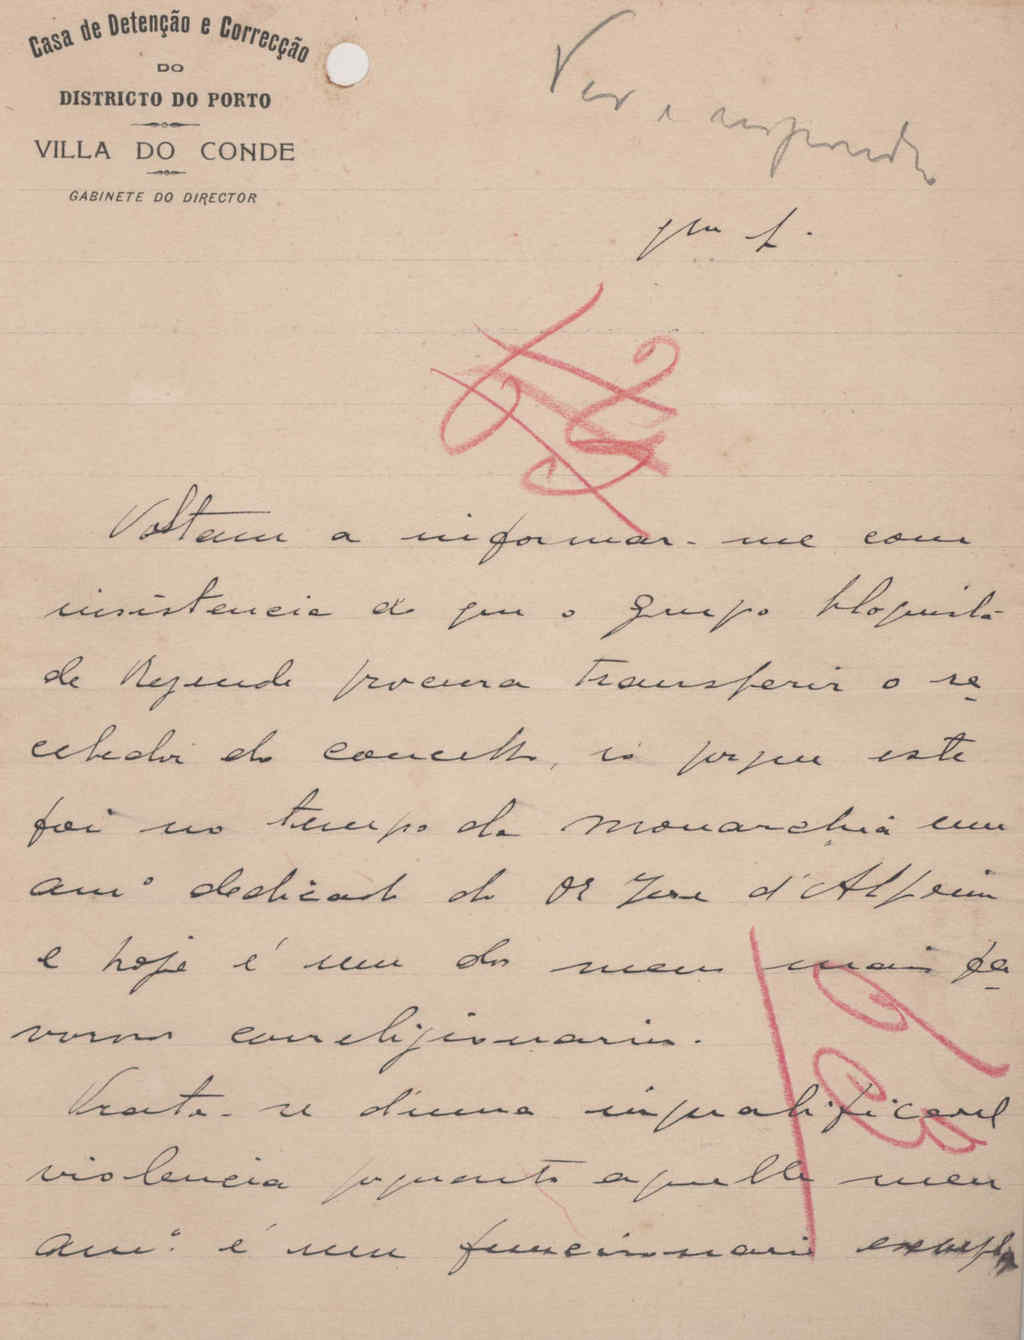 Casa de Detenção e Correcção
DO
DISTRICTO DO PORTO
VILLA DO CONDE
GABINETE DO DIRECTOR
Ver e responder
Voltam a informar-me com
insistencia de que o grupo bloquista
de Rezende procura transferir o re
cebedor do concelho, só porque este
foi no tempo da monarchia um
amº dedicado do Dr Jose d'Alpoim
e hoje é um dos meus mais fer
vorosos correligionarios.
Trata-se d'uma inqualificavel
violencia porquanto aquelle meu
amº é um funccionario exempla